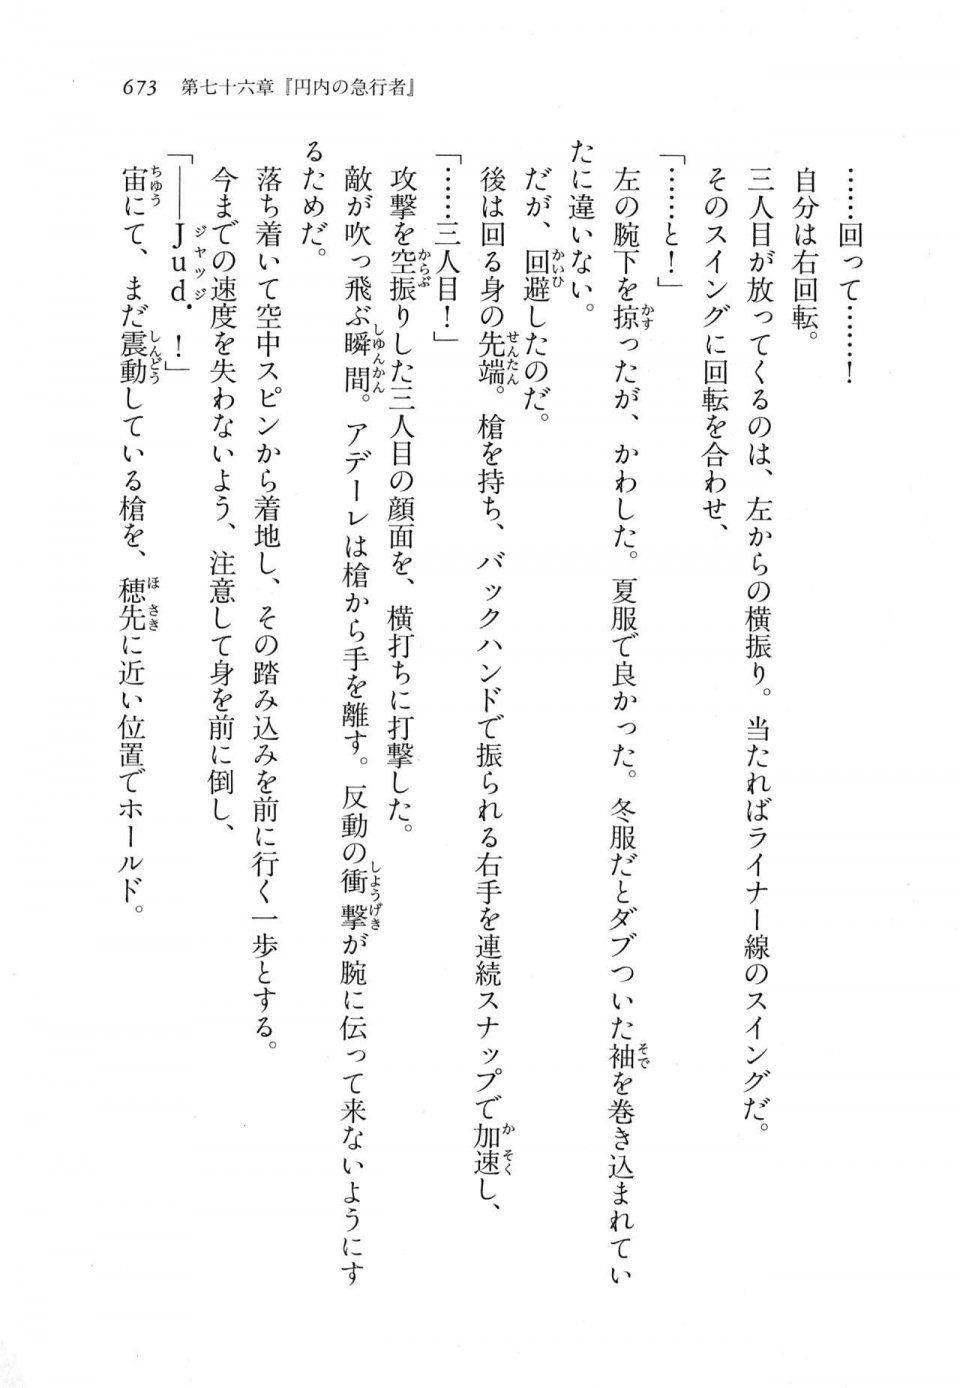 673 第七十六章『円内の急行者』
……回って……！
自分は右回転。
三人目が放ってくるのは、左からの横振り。当たればライナー線のスイングだ。
そのスイングに回転を合わせ、
「……と！」
左の腕下を掠ったが、かわした。夏服で良かった。冬服だとダブついた袖を巻き込まれてい
たに違いない。
だが、回避したのだ。
後は回る身の先端。槍を持ち、バックハンドで振られる右手を連続スナップで加速し、
「……三人目！」
攻撃を空振りした三人目の顔面を、横打ちに打撃した。
敵が吹っ飛ぶ瞬間。アデーレは槍から手を離す。反動の衝撃が腕に伝って来ないようにす
るためだ。
落ち着いて空中スピンから着地し、その踏み込みを前に行く一歩とする。
今までの速度を失わないよう、注意して身を前に倒し、
「――Jud．！」
宙にて、まだ震動している槍を、穂先に近い位置でホールド。